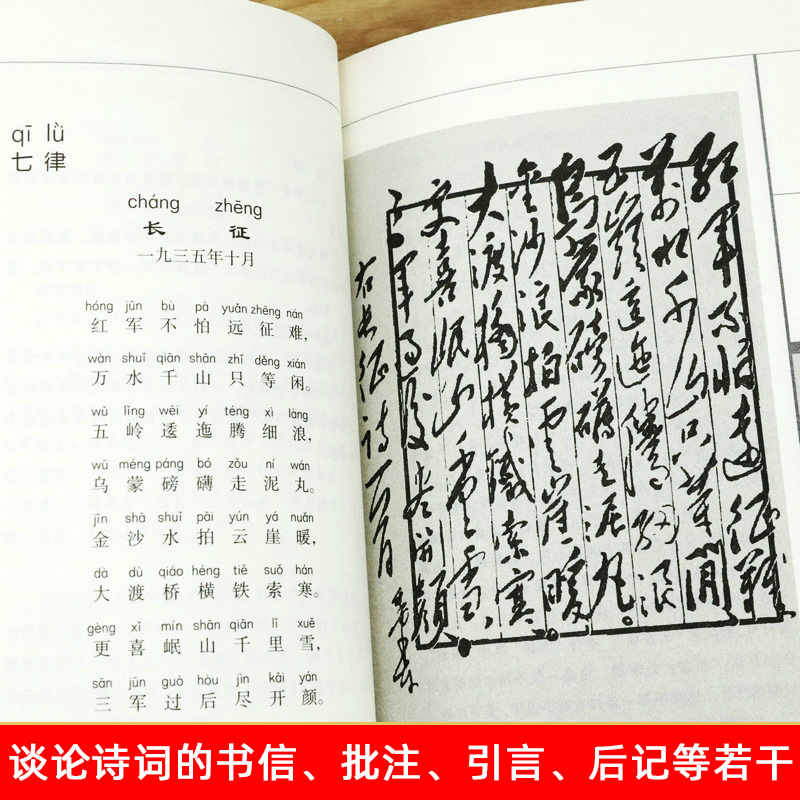 qī lǜ
七律
cháng zhēng
长征
一九三五年十月
hóng jūn bù pà yuǎn zhēng nán
红军不怕远征难,
wàn shuǐ qiān shān zhǐ děng xián
万水千山只等闲。
wǔ lǐng wēi yí téng xì làng
五岭逶迤腾细浪,
wū méng páng bó zǒu ní wán
乌蒙磅礴走泥丸。
jīn shā shuǐ pāi yún yá nuǎn
金沙水拍云崖暖,
dà dù qiáo héng tiě suǒ hán
大渡桥横铁索寒。
gèng xǐ mín shān qiān lǐ xuě
更喜岷山千里雪,
sān jūn guò hòu jìn kāi yán
三军过后尽开颜。
红军不怕远征难
万水千山只等闲
五岭逶迤腾细浪
乌蒙磅礴走泥丸。
金沙浪拍云崖暖
大渡桥横铁索寒
更喜岷山千里雪
三军过后尽开颜
右长征诗一首
谈论诗词的书信、批注、引言、后记等若干